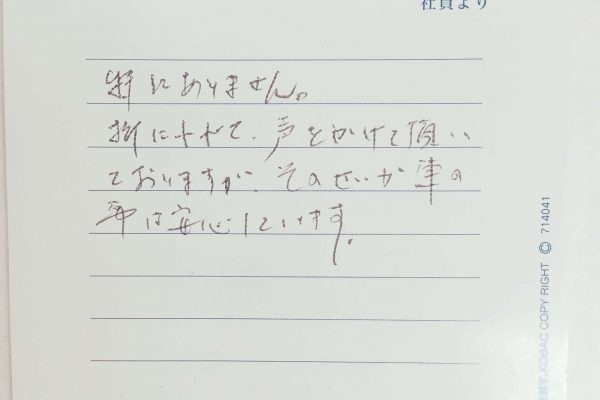 社員より
特にありません。
折にふれて、声をかけて頂い
ておりますが、そのせいか車の
事は安心しています。
KOBAC COPY RIGHT © 714041